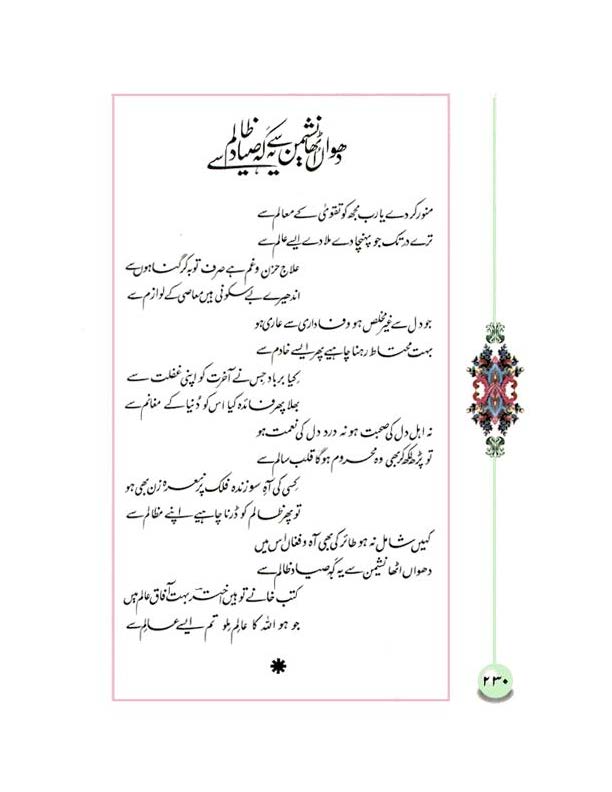 دھواں اٹھا نشیمن سے یہ کہہ صیاد ظالم سے
منور کر دے یارب مجھ کو تقویٰ کے معالم سے
ترے در تک جو پہنچا دے ملا دے ایسے عالم سے
علاجِ حزن و غم ہے صرف توبہ کر گناہوں سے
اندھیرے بے سکونی ہیں معاصی کے لوازم سے
جو دل سے غیر مخلص ہو وفاداری سے عاری ہو
بہت محتاط رہنا چاہیے پھر ایسے خادم سے
کیا برباد جس نے آخرت کو اپنی غفلت سے
بھلا پھر فائدہ کیا اس کو دُنیا کے مغانم سے
نہ اہلِ دل کی صحبت ہو نہ دردِ دل کی نعمت ہو
تو پڑھ لکھ کر بھی وہ محروم ہوگا قلبِ سالم سے
کسی کی آہِ سوزندہ فلک پر نعرہ زن بھی ہو
تو پھر ظالم کو ڈرنا چاہیے اپنے مظالم سے
کہیں شامل نہ ہو طائر کی بھی آہ و فغاں اس میں
دھواں اٹھا نشیمن سے یہ کہہ صیاد ظالم سے
کتب خانے تو ہیں اخترؔ بہت آفاقِ عالم میں
جو ہو اللہ کا عالِم ملو تم ایسے عالِم سے
۲۳۰